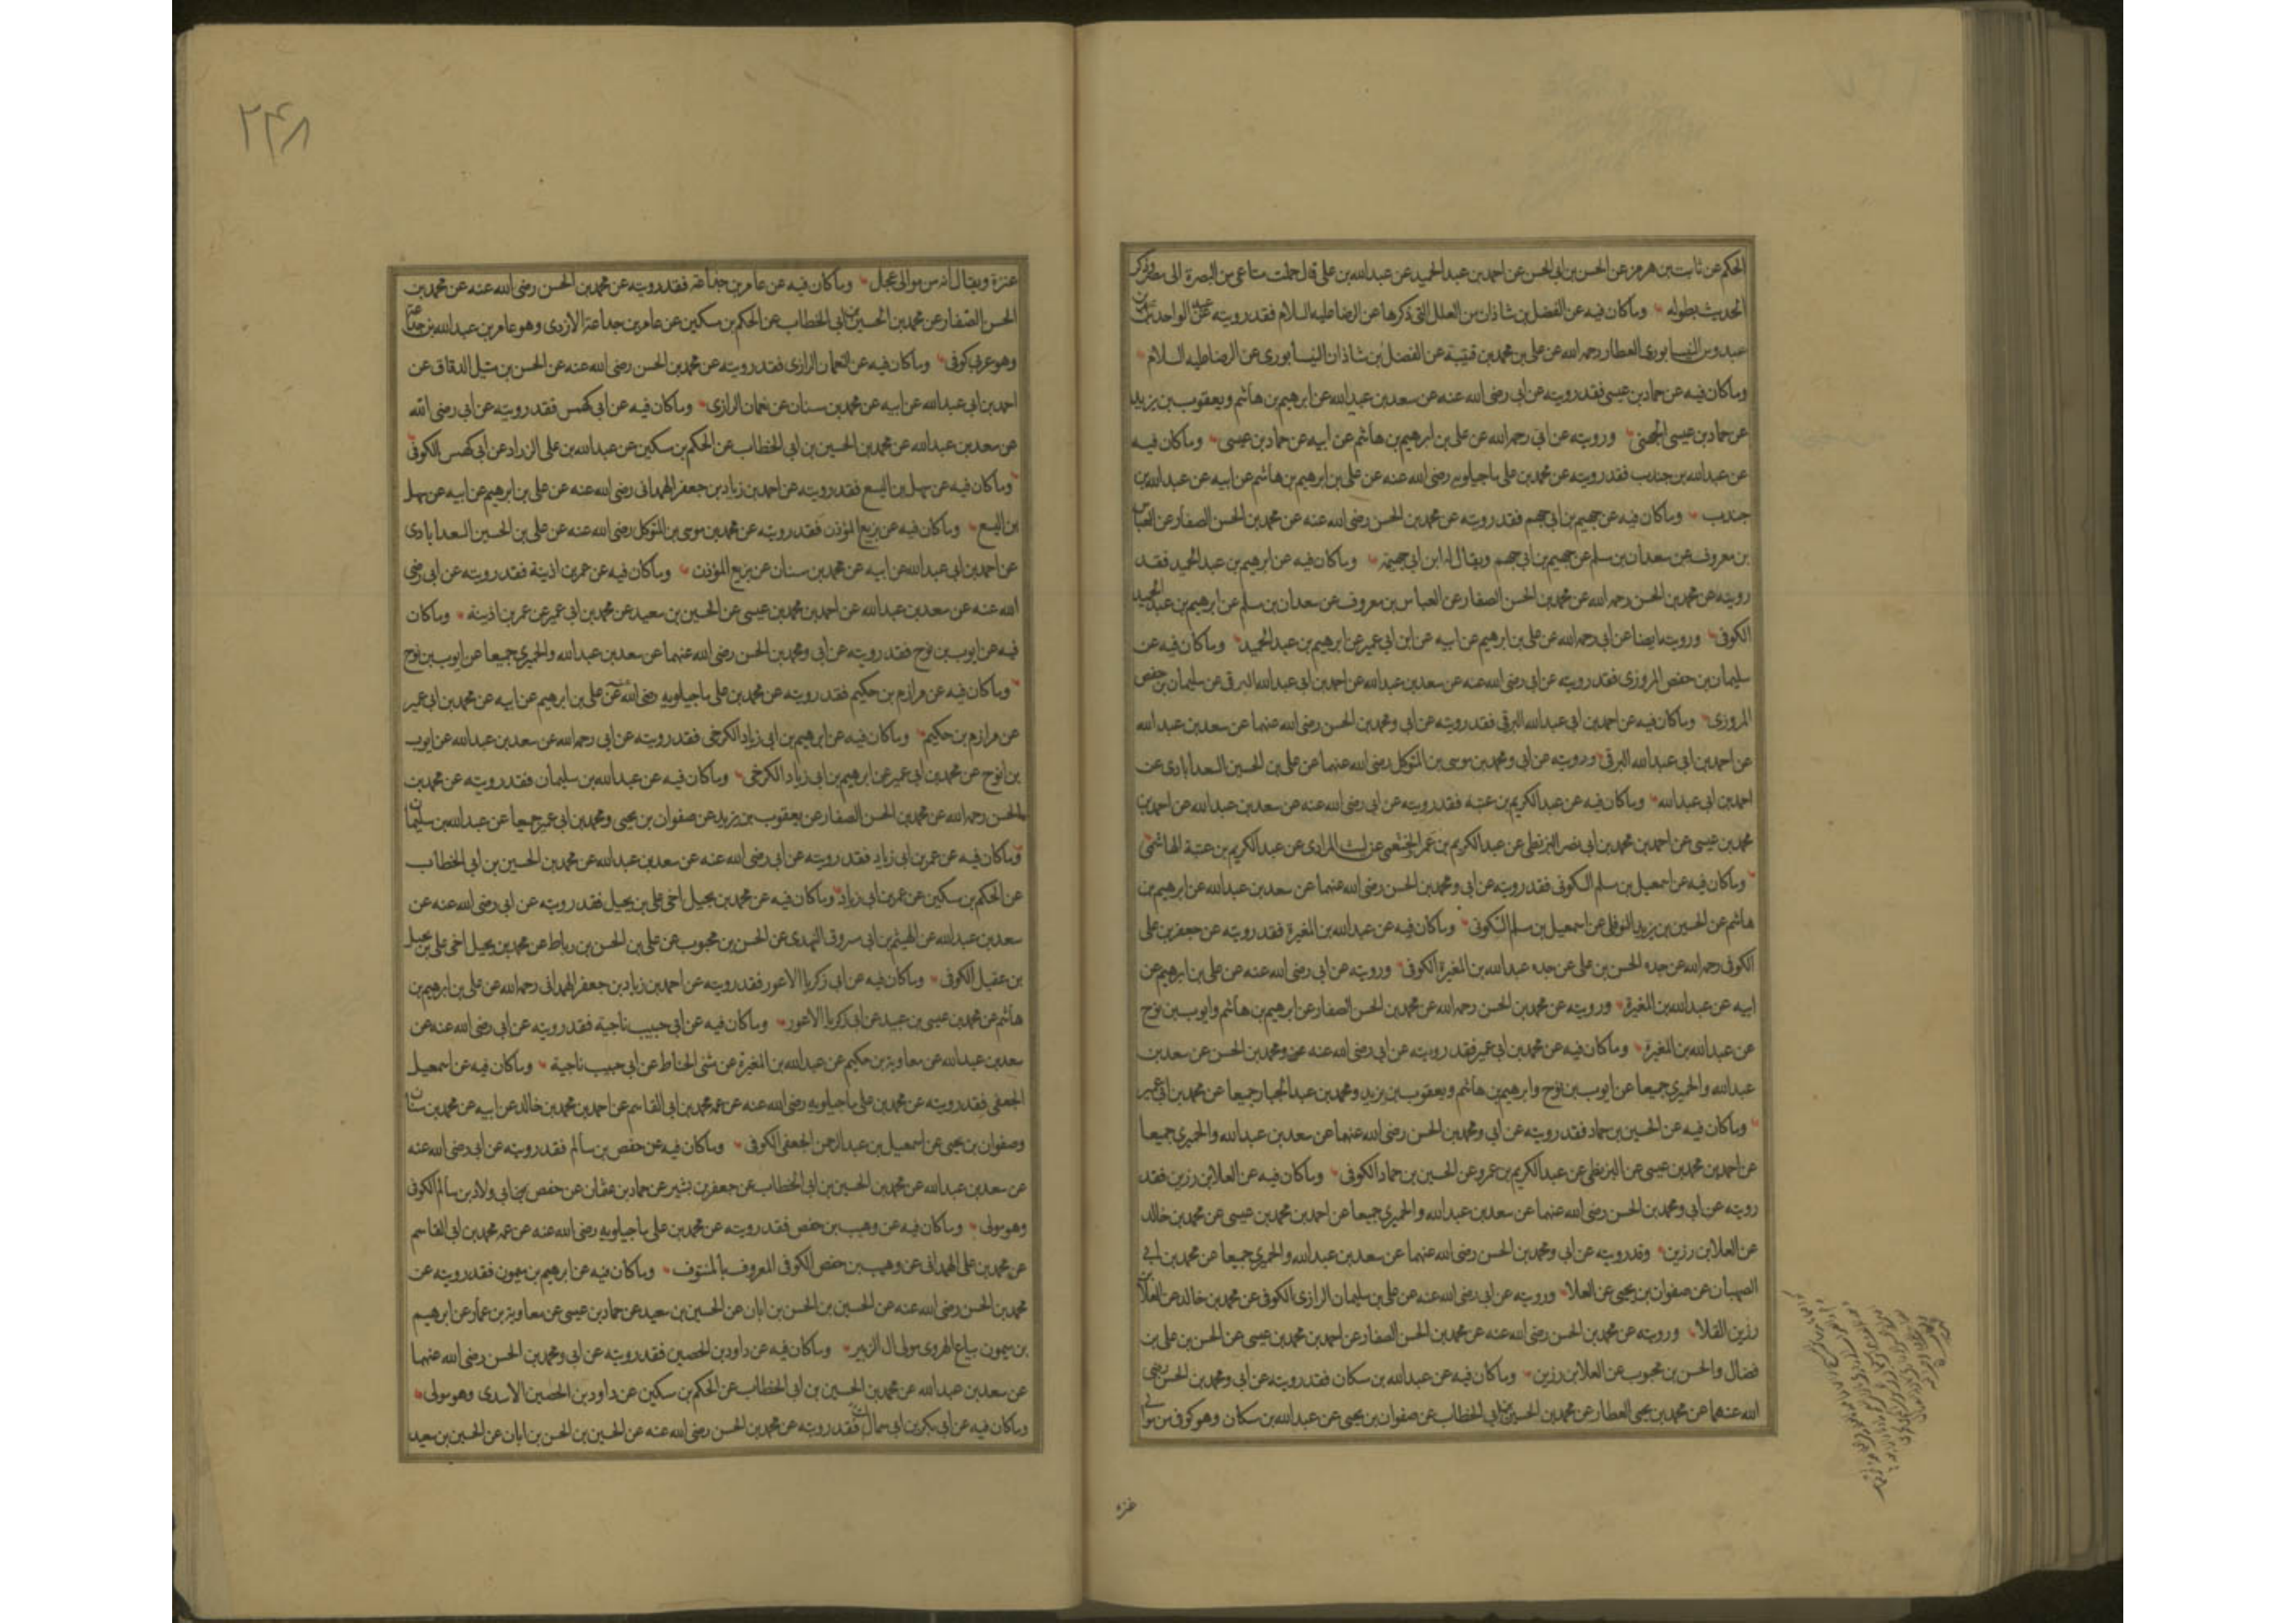 الحكم عن ثابت بن هرمز عن الحسن بن ابي الحسن عن احمد بن عبد الحميد عن عبد الله بن علي قال حملت متاعي من البصرة الى مصر وذكر
الحديث بطوله وما كان فيه عن الفضل بن شاذان من العلل التي ذكرها عن الرضا عليه السلام فقد رويته عن عبد الواحد بن
عبدوس النيسابوري العطار رحمه الله عن علي بن محمد بن قتيبة عن الفضل بن شاذان النيسابوري عن الرضا عليه السلام
وما كان فيه عن حماد بن عيسى فقد رويته عن ابي رضي الله عنه عن سعد بن عبد الله عن ابرهيم بن هاشم ويعقوب بن يزيد
عن حماد بن عيسى الجهني ورويته عن ابي رحمه الله عن علي بن ابرهيم بن هاشم عن ابيه عن حماد بن عيسى وما كان فيه
عن عبد الله بن جندب فقد رويته عن محمد بن علي ماجيلويه رضي الله عنه عن علي بن ابرهيم بن هاشم عن ابيه عن عبد الله بن
جندب وما كان فيه عن جهيم بن ابي جهم فقد رويته عن محمد بن الحسن رضي الله عنه عن محمد بن الحسن الصفار عن العباس
بن معروف عن سعدان بن مسلم عن جهيم بن ابي جهم ويقال له ابن ابي جهيمة وما كان فيه عن ابرهيم بن عبد الحميد فقد
رويته عن محمد بن الحسن رحمه الله عن محمد بن الحسن الصفار عن العباس بن معروف عن سعدان بن مسلم عن ابرهيم بن عبد الحميد
الكوفي ورويته ايضا عن ابي رحمه الله عن علي بن ابرهيم عن ابيه عن ابن ابي عمير عن ابرهيم بن عبد الحميد وما كان فيه عن
سليمان بن حفص المروزي فقد رويته عن ابي رضي الله عنه عن سعد بن عبد الله عن احمد بن ابي عبد الله البرقي عن سليمان بن حفص
المروزي وما كان فيه عن احمد بن ابي عبد الله البرقي فقد رويته عن ابي ومحمد بن الحسن رضي الله عنهما عن سعد بن عبد الله
عن احمد بن ابي عبد الله البرقي ورويته عن ابي ومحمد بن موسى بن المتوكل رضي الله عنهما عن علي بن الحسين السعدابادي عن
احمد بن ابي عبد الله وما كان فيه عن عبد الكريم بن عتبة فقد رويته عن ابي رضي الله عنه عن سعد بن عبد الله عن احمد بن
محمد بن عيسى عن احمد بن محمد بن ابي نصر البزنطي عن عبد الكريم بن عمر الخثعمي عن ليث المرادي عن عبد الكريم بن عتبة الهاشمي
وما كان فيه عن اسمعيل بن مسلم السكوني فقد رويته عن ابي ومحمد بن الحسن رضي الله عنهما عن سعد بن عبد الله عن ابرهيم بن
هاشم عن الحسين بن يزيد النوفلي عن اسمعيل بن مسلم السكوني وما كان فيه عن عبد الله بن المغيرة فقد رويته عن جعفر بن علي
الكوفي رحمه الله عن جده الحسن بن علي عن جده عبد الله بن المغيرة الكوفي ورويته عن ابي رضي الله عنه عن علي بن ابرهيم عن
ابيه عن عبد الله بن المغيرة ورويته عن محمد بن الحسن رحمه الله عن محمد بن الحسن الصفار عن ابرهيم بن هاشم وايوب بن نوح
عن عبد الله بن المغيرة وما كان فيه عن محمد بن ابي عمير فقد رويته عن ابي رضي الله عنه ومحمد بن الحسن عن سعد بن
عبد الله والحميري جميعا عن ايوب بن نوح وابرهيم بن هاشم ويعقوب بن يزيد ومحمد بن عبد الجبار جميعا عن محمد بن ابي عمير
وما كان فيه عن الحسين بن حماد فقد رويته عن ابي ومحمد بن الحسن رضي الله عنهما عن سعد بن عبد الله والحميري جميعا
عن احمد بن محمد بن عيسى عن البزنطي عن عبد الكريم بن عمرو عن الحسين بن حماد الكوفي وما كان فيه عن العلا بن رزين فقد
رويته عن ابي ومحمد بن الحسن رضي الله عنهما عن سعد بن عبد الله والحميري جميعا عن احمد بن محمد بن عيسى عن محمد بن خالد
عن العلا بن رزين وقد رويته عن ابي ومحمد بن الحسن رضي الله عنهما عن سعد بن عبد الله والحميري جميعا عن محمد بن ابي
الصهبان عن صفوان بن يحيى عن العلا ورويته عن ابي رضي الله عنه عن علي بن سليمان الرازي الكوفي عن محمد بن خالد عن العلا بن
رزين القلا ورويته عن محمد بن الحسن رضي الله عنه عن محمد بن الحسن الصفار عن احمد بن محمد بن عيسى عن الحسن بن علي بن
فضال والحسن بن محبوب عن العلا بن رزين وما كان فيه عن عبد الله بن مسكان فقد رويته عن ابي ومحمد بن الحسن رضي
الله عنهما عن محمد بن يحيى العطار عن محمد بن الحسين بن ابي الخطاب عن صفوان بن يحيى عن عبد الله بن مسكان وهو كوفي من موالي
عنزه
۲۴۸
عنزة ويقال انه من موالي عجل وما كان فيه عن عامر بن جذاعة فقد رويته عن محمد بن الحسن رضي الله عنه عن محمد بن
الحسن الصفار عن محمد بن الحسين بن ابي الخطاب عن الحكم بن مسكين عن عامر بن جداعة الازدي وهو عامر بن عبد الله بن جداعة
وهو عربي كوفي وما كان فيه عن النعمان الرازي فقد رويته عن محمد بن الحسن رضي الله عنه عن الحسن بن متيل الدقاق عن
احمد بن ابي عبد الله عن ابيه عن محمد بن سنان عن نعمان الرازي وما كان فيه عن ابي كهمس فقد رويته عن ابي رضي الله
عن سعد بن عبد الله عن محمد بن الحسين بن ابي الخطاب عن الحكم بن مسكين عن عبد الله بن علي الزراد عن ابي كهمس الكوفي
وما كان فيه عن سهل بن اليسع فقد رويته عن احمد بن زياد بن جعفر الهمداني رضي الله عنه عن علي بن ابرهيم عن ابيه عن سهل
بن اليسع وما كان فيه عن بزيع المؤذن فقد رويته عن محمد بن موسى بن المتوكل رضي الله عنه عن علي بن الحسين السعدابادي
عن احمد بن ابي عبد الله عن ابيه عن محمد بن سنان عن بزيع المؤذن وما كان فيه عن عمر بن اذينة فقد رويته عن ابي رضي
الله عنه عن سعد بن عبد الله عن احمد بن محمد بن عيسى عن الحسين بن سعيد عن محمد بن ابي عمير عن عمر بن اذينة وما كان
فيه عن ايوب بن نوح فقد رويته عن ابي ومحمد بن الحسن رضي الله عنهما عن سعد بن عبد الله والحميري جميعا عن ايوب بن نوح
وما كان فيه عن مرازم بن حكيم فقد رويته عن محمد بن علي ماجيلويه رضي الله عنه عن علي بن ابرهيم عن ابيه عن محمد بن ابي عمير
عن مرازم بن حكيم وما كان فيه عن ابرهيم بن ابي زياد الكرخي فقد رويته عن ابي رحمه الله عن سعد بن عبد الله عن ايوب
بن نوح عن محمد بن ابي عمير عن ابرهيم بن ابي زياد الكرخي وما كان فيه عن عبد الله بن سليمان فقد رويته عن محمد بن
الحسن رحمه الله عن محمد بن الحسن الصفار عن يعقوب بن يزيد عن صفوان بن يحيى ومحمد بن ابي عمير جميعا عن عبد الله بن سليمان
وما كان فيه عن عمر بن ابي زياد فقد رويته عن ابي رضي الله عنه عن سعد بن عبد الله عن محمد بن الحسين بن ابي الخطاب
عن الحكم بن مسكين عن عمر بن ابي زياد وما كان فيه عن محمد بن بجيل اخي علي بن بجيل فقد رويته عن ابي رضي الله عنه عن
سعد بن عبد الله عن الهيثم بن ابي مسروق النهدي عن الحسن بن محبوب عن علي بن الحسن بن رباط عن محمد بن بجيل اخي علي بن بجيل
بن عقيل الكوفي وما كان فيه عن ابي زكريا الاعور فقد رويته عن احمد بن زياد بن جعفر الهمداني رحمه الله عن علي بن ابرهيم بن
هاشم عن محمد بن عيسى بن عبيد عن ابي زكريا الاعور وما كان فيه عن ابي حبيب ناجية فقد رويته عن ابي رضي الله عنه عن
سعد بن عبد الله عن معاوية بن حكيم عن عبد الله بن المغيرة عن مثنى الحناط عن ابي حبيب ناجية وما كان فيه عن اسمعيل
الجعفي فقد رويته عن محمد بن علي ماجيلويه رضي الله عنه عن عمه محمد بن ابي القاسم عن احمد بن محمد بن خالد عن ابيه عن محمد بن سنان
وصفوان بن يحيى عن اسمعيل بن عبد الرحمن الجعفي الكوفي وما كان فيه عن حفص بن سالم فقد رويته عن ابي رضي الله عنه
عن سعد بن عبد الله عن محمد بن الحسين بن ابي الخطاب عن جعفر بن بشير عن حماد بن عثمان عن حفص بن ابي ولاد بن سالم الكوفي
وهو مولى وما كان فيه عن وهيب بن حفص فقد رويته عن محمد بن علي ماجيلويه رضي الله عنه عن عمه محمد بن ابي القاسم
عن محمد بن علي الهمداني عن وهيب بن حفص الكوفي المعروف بالمنتوف وما كان فيه عن ابرهيم بن ميمون فقد رويته عن
محمد بن الحسن رضي الله عنه عن الحسين بن الحسن بن ابان عن الحسين بن سعيد عن حماد بن عيسى عن معاوية بن عمار عن ابرهيم
بن ميمون بياع الهروي مولى ال الزبير وما كان فيه عن داود بن الحصين فقد رويته عن ابي ومحمد بن الحسن رضي الله عنهما
عن سعد بن عبد الله عن محمد بن الحسين بن ابي الخطاب عن الحكم بن مسكين عن داود بن الحصين الاسدي وهو مولى
وما كان فيه عن ابي بكر بن ابي سمال فقد رويته عن محمد بن الحسن رضي الله عنه عن الحسين بن الحسن بن ابان عن الحسين بن سعيد